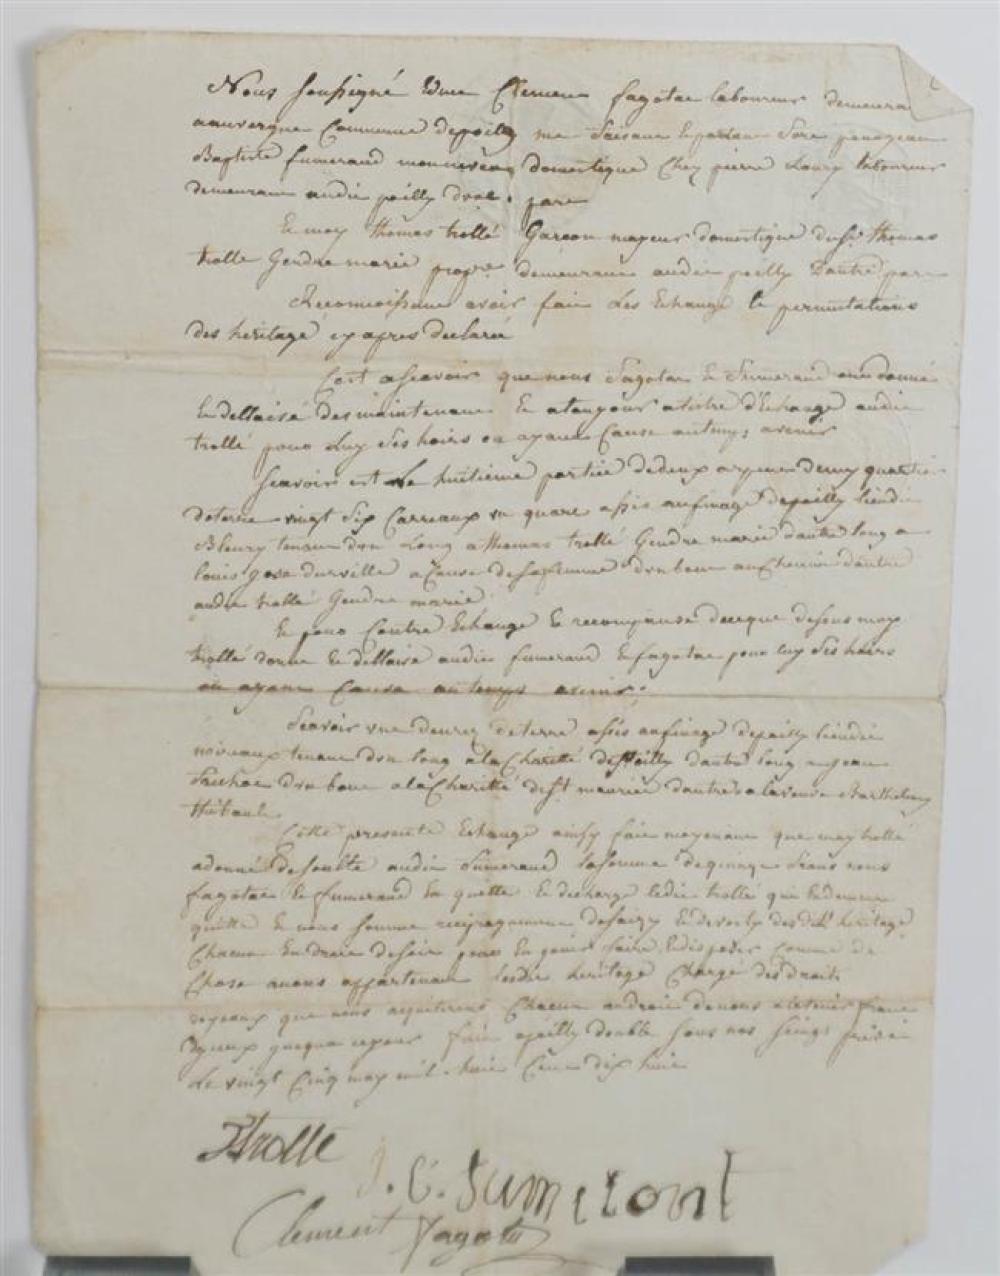 Nous soussigné Edme Clement fagotat laboureur demeura
a auvergne Commune depoilly me faisant et portant fore pour jean
Baptiste fumeraud mon neveu domestique Chez pierre Loury laboureur
demeurant audit poilly dune part
Et moy thomas trollé Garcon mageur domestique dusr thomas
trollé Gendre marié demeurant audit poilly Dautre part
Reconnoissent avoir fait Les Echange et permutations
des heritage cy apres declaré
Cest ascavoir que nous Fagotat et Fumeraud ont donné
et dellaisé des maintenant Et atoujour atitre dEchange audit
trollé pour Luy Ses hoirs ou ayant Cause autemps avenir
Scavoir est La huitieme partie dedeux arpent demy quartier
deterre vingt Six Carreaux un quart assis aufinage depoilly lieudit
Bleury tenant dun Long a thomas trollé Gendre marié dautre long a
louis a Cause de safemme dun bout au Chemin dautre
audit trollé Gendre marié
Et pour Contre Echange et recompanse deceque dessus moy
trollé donne et dellaise audit fumeraud et fagotat pour luy Ses hoirs
ou ayant Cause au temps avenir
Scavoir une denrez deterre assis aufinage depoilly lieudit
noiveaux tenant dun long ala Charitté depoilly dautre long a jean
dun bout a la Charitté de St maurice dautre a laveuve Barthelemy
thibault
Cette presente Echange ainsy fait moyenant que moy trollé
adonné desoulte audit Fumeraud lasomme dequinze frans nous
fagotat et fumeraud en quitte et decharge ledit trollé que
quitte et nous somme reciproquement desaizy et devesty desdit heritage
Chacun En droit desoit pour En jouir faire et disposer Comme de
Chose anous appartenant lesdit heritage Charge des droits
royeaux que nous aquitterons Chacun audroit denous a lavenir franc
Dyceux jusqua cejour fait apoilly double sous nos seings privé
Le vingt Cinq may mil huit Cent dix huit
trollé
J. C. Fumeront
Clement Fagotat